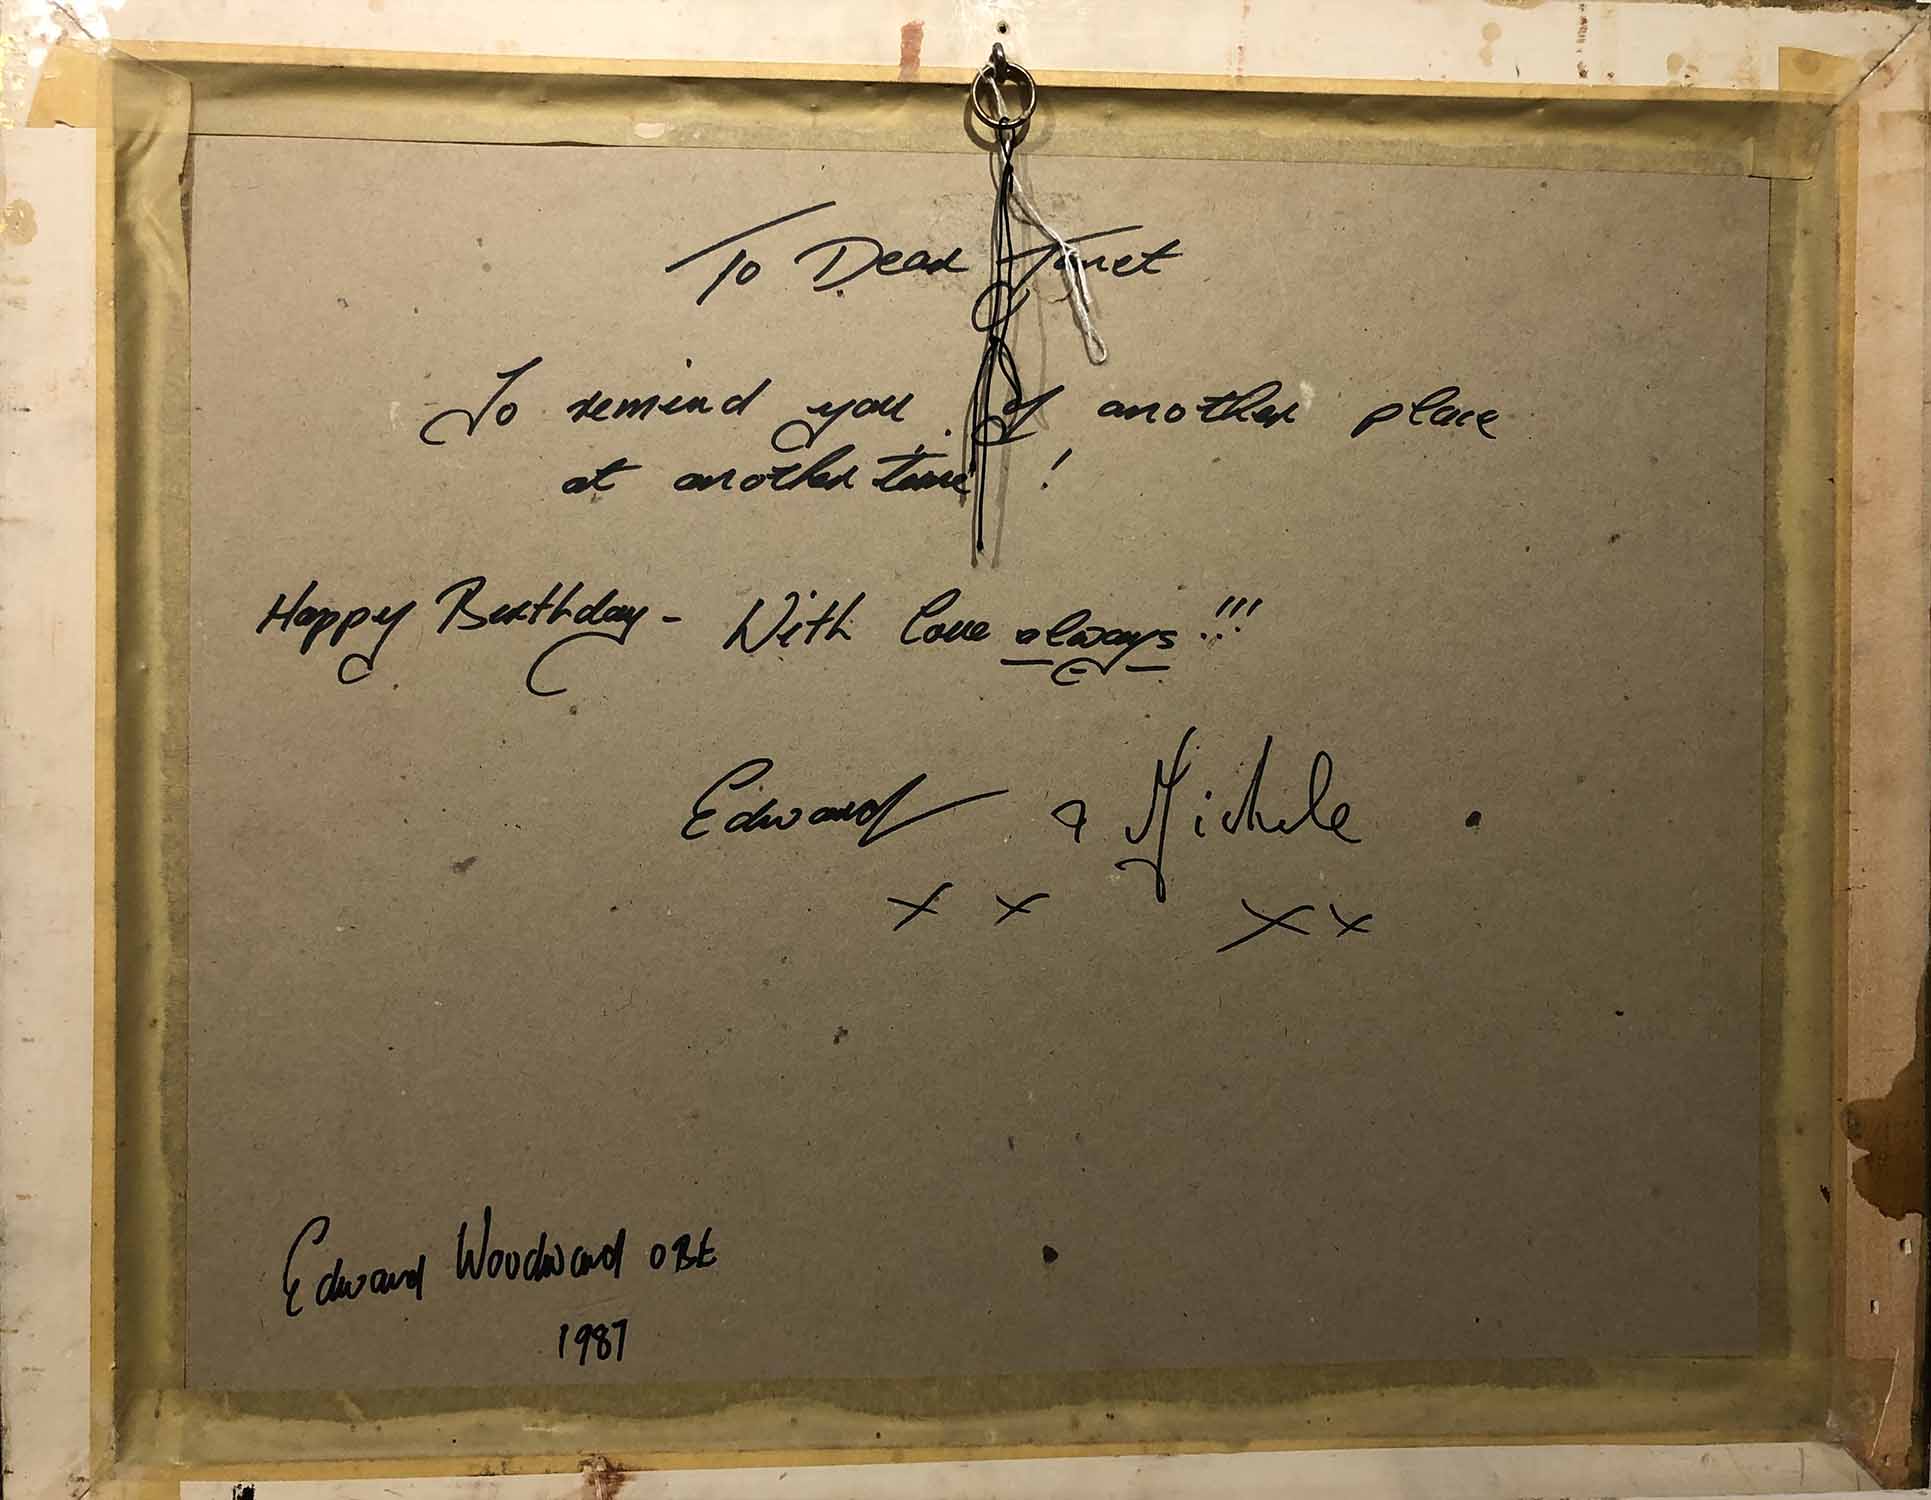 To Dear Janet
To remind you of another place
at another time !
Happy Birthday - With love always !!!
Edward & Michele
x x xx
Edward Woodward OBE
1987